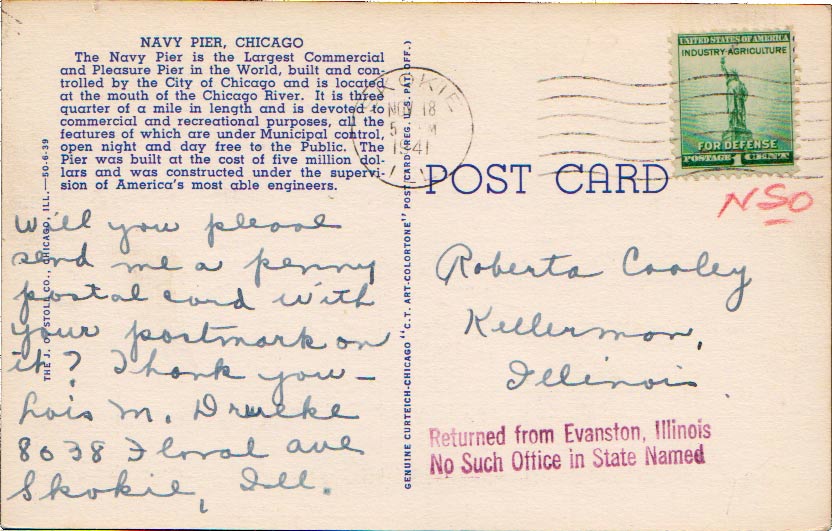 NAVY PIER, CHICAGO
The Navy Pier is the Largest Commercial
and Pleasure Pier in the World, built and con-
trolled by the City of Chicago and is located
at the mouth of the Chicago River. It is three
quarter of a mile in length and is devoted to
commercial and recreational purposes, all the
features of which are under Municipal control,
open night and day free to the Public. The
Pier was built at the cost of five million dol-
lars and was constructed under the supervi-
sion of America's most able engineers.
THE J. O. STOLL CO., CHICAGO, ILL.—50-6-39
Will you please
send me a penny
postal card with
your postmark on
it? Thank you—
Lois M. Drueke
8038 Floral Ave
Skokie, Ill.
GENUINE CURTEICH-CHICAGO "C.T. ART-COLORTONE" POST CARD (REG. U.S. PAT. OFF.)
SKOKIE
NOV 18
1941
UNITED STATES OF AMERICA
INDUSTRY·AGRICULTURE
FOR DEFENSE
POSTAGE 1 CENT
POST CARD
NSO
Roberta Cooley
Kellerman,
Illinois
Returned from Evanston, Illinois
No Such Office in State Named